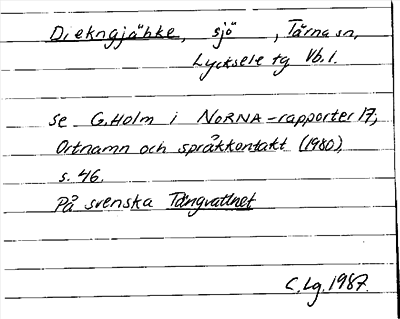 Diekngjáhke, sjö, Tärna sn,
Lycksele tg Vb.l.
se G.Holm i NORNA-rapporter 17,
Ortnamn och språkkontakt (1980),
s. 46.
På svenska Tängvattnet
C.Lg.1987.